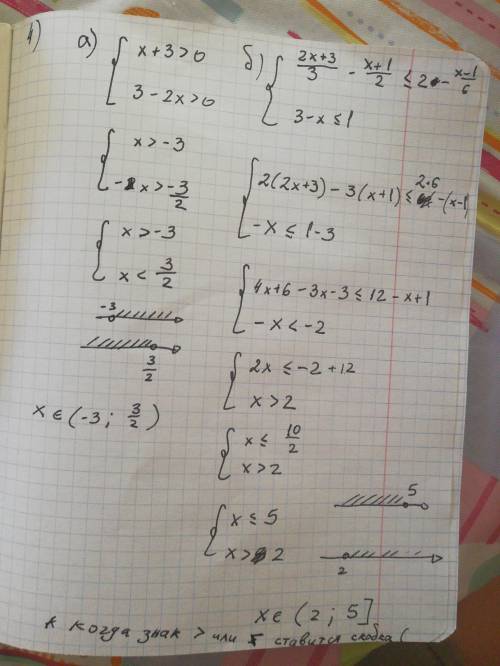 1)
а) { x+3>0
3-2x>0
{ x>-3
-x>-3/2
{ x>-3
x<3/2
-3
3/2
x∈(-3; 3/2)
б) { (2x+3)/3 - (x+1)/2 ≤ 2 - (x-1)/6
3-x≤1
{ 2(2x+3)-3(x+1) ≤ 2·6 -(x-1)
-x≤1-3
{ 4x+6-3x-3≤12-x+1
-x<-2
{ 2x≤-2+12
x>2
{ x≤10/2
x>2
{ x≤5
x>2
5
2
x∈(2; 5]
когда знак > или < ставится скобка (